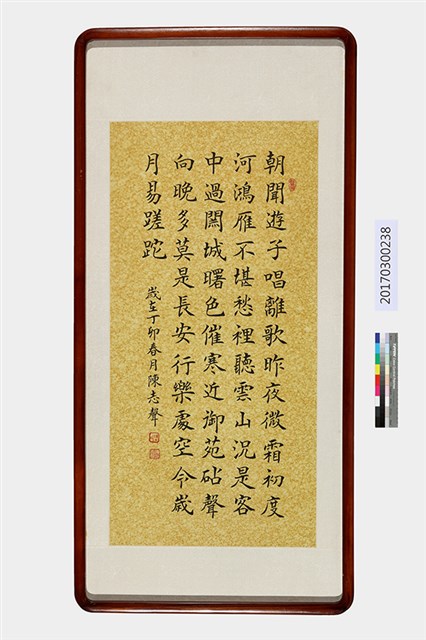 朝聞遊子唱離歌昨夜微霜初度
河鴻雁不堪愁裡聽雲山況是客
中過關城曙色催寒近御苑砧聲
向晚多莫是長安行樂處空令歲
月易蹉跎
歲在丁卯春月陳志聲
20170300238